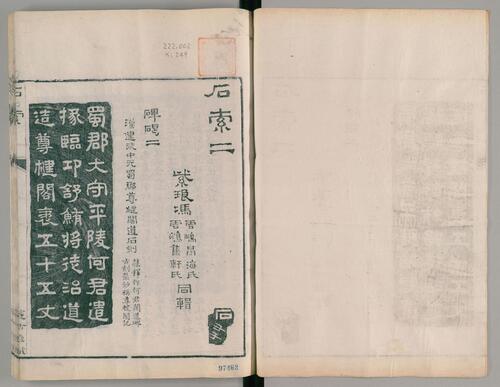 222.002
石索二
紫琅馮
雲鵬晏海氏
雲鵷集軒氏
同輯
碑碣二
漢建武中元蜀郡尊楗閣道石刻
蜀郡大守平陵何君遣
掾臨邛舒鮪將徒治道
造尊楗閣袤五十五丈
石索
97468